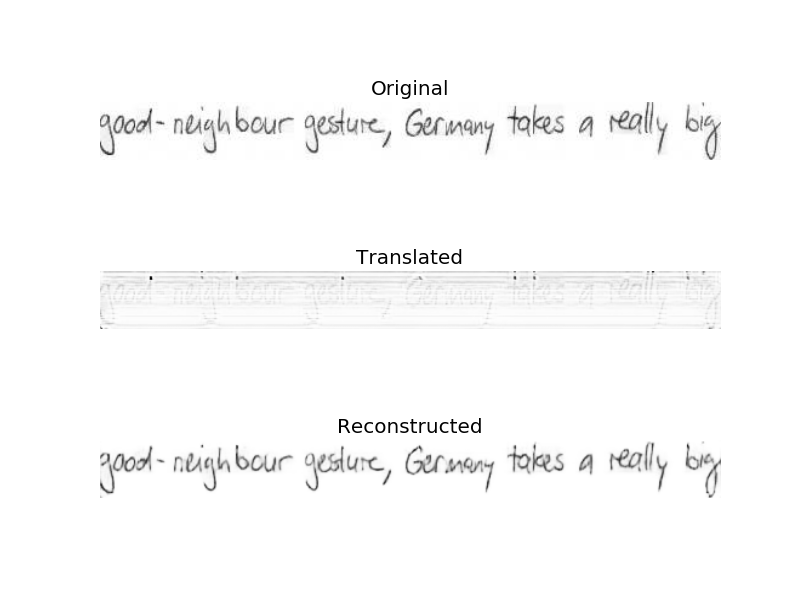 Original
good-neighbour gesture, Germany takes a really big
Translated
good-neighbour gesture, Germany takes a really big
Reconstructed
good-neighbour gesture, Germany takes a really big